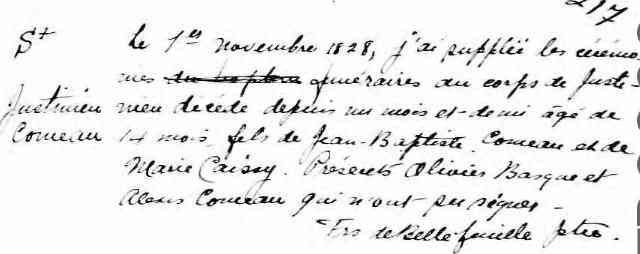 217
St Le 1er novembre 1828, j'ai supplée les cérémo-
nies du baptême funéraires au corps de Juste-
Justinien nien décédé depuis un mois et demi âgé de
Comeau 14 mois, fils de Jean-Baptiste Comeau et de
Marie Caissy. Présents Olivier Basque et
Alexis Comeau qui n'ont pu signer -
Frs de Bellefeuille ptre.